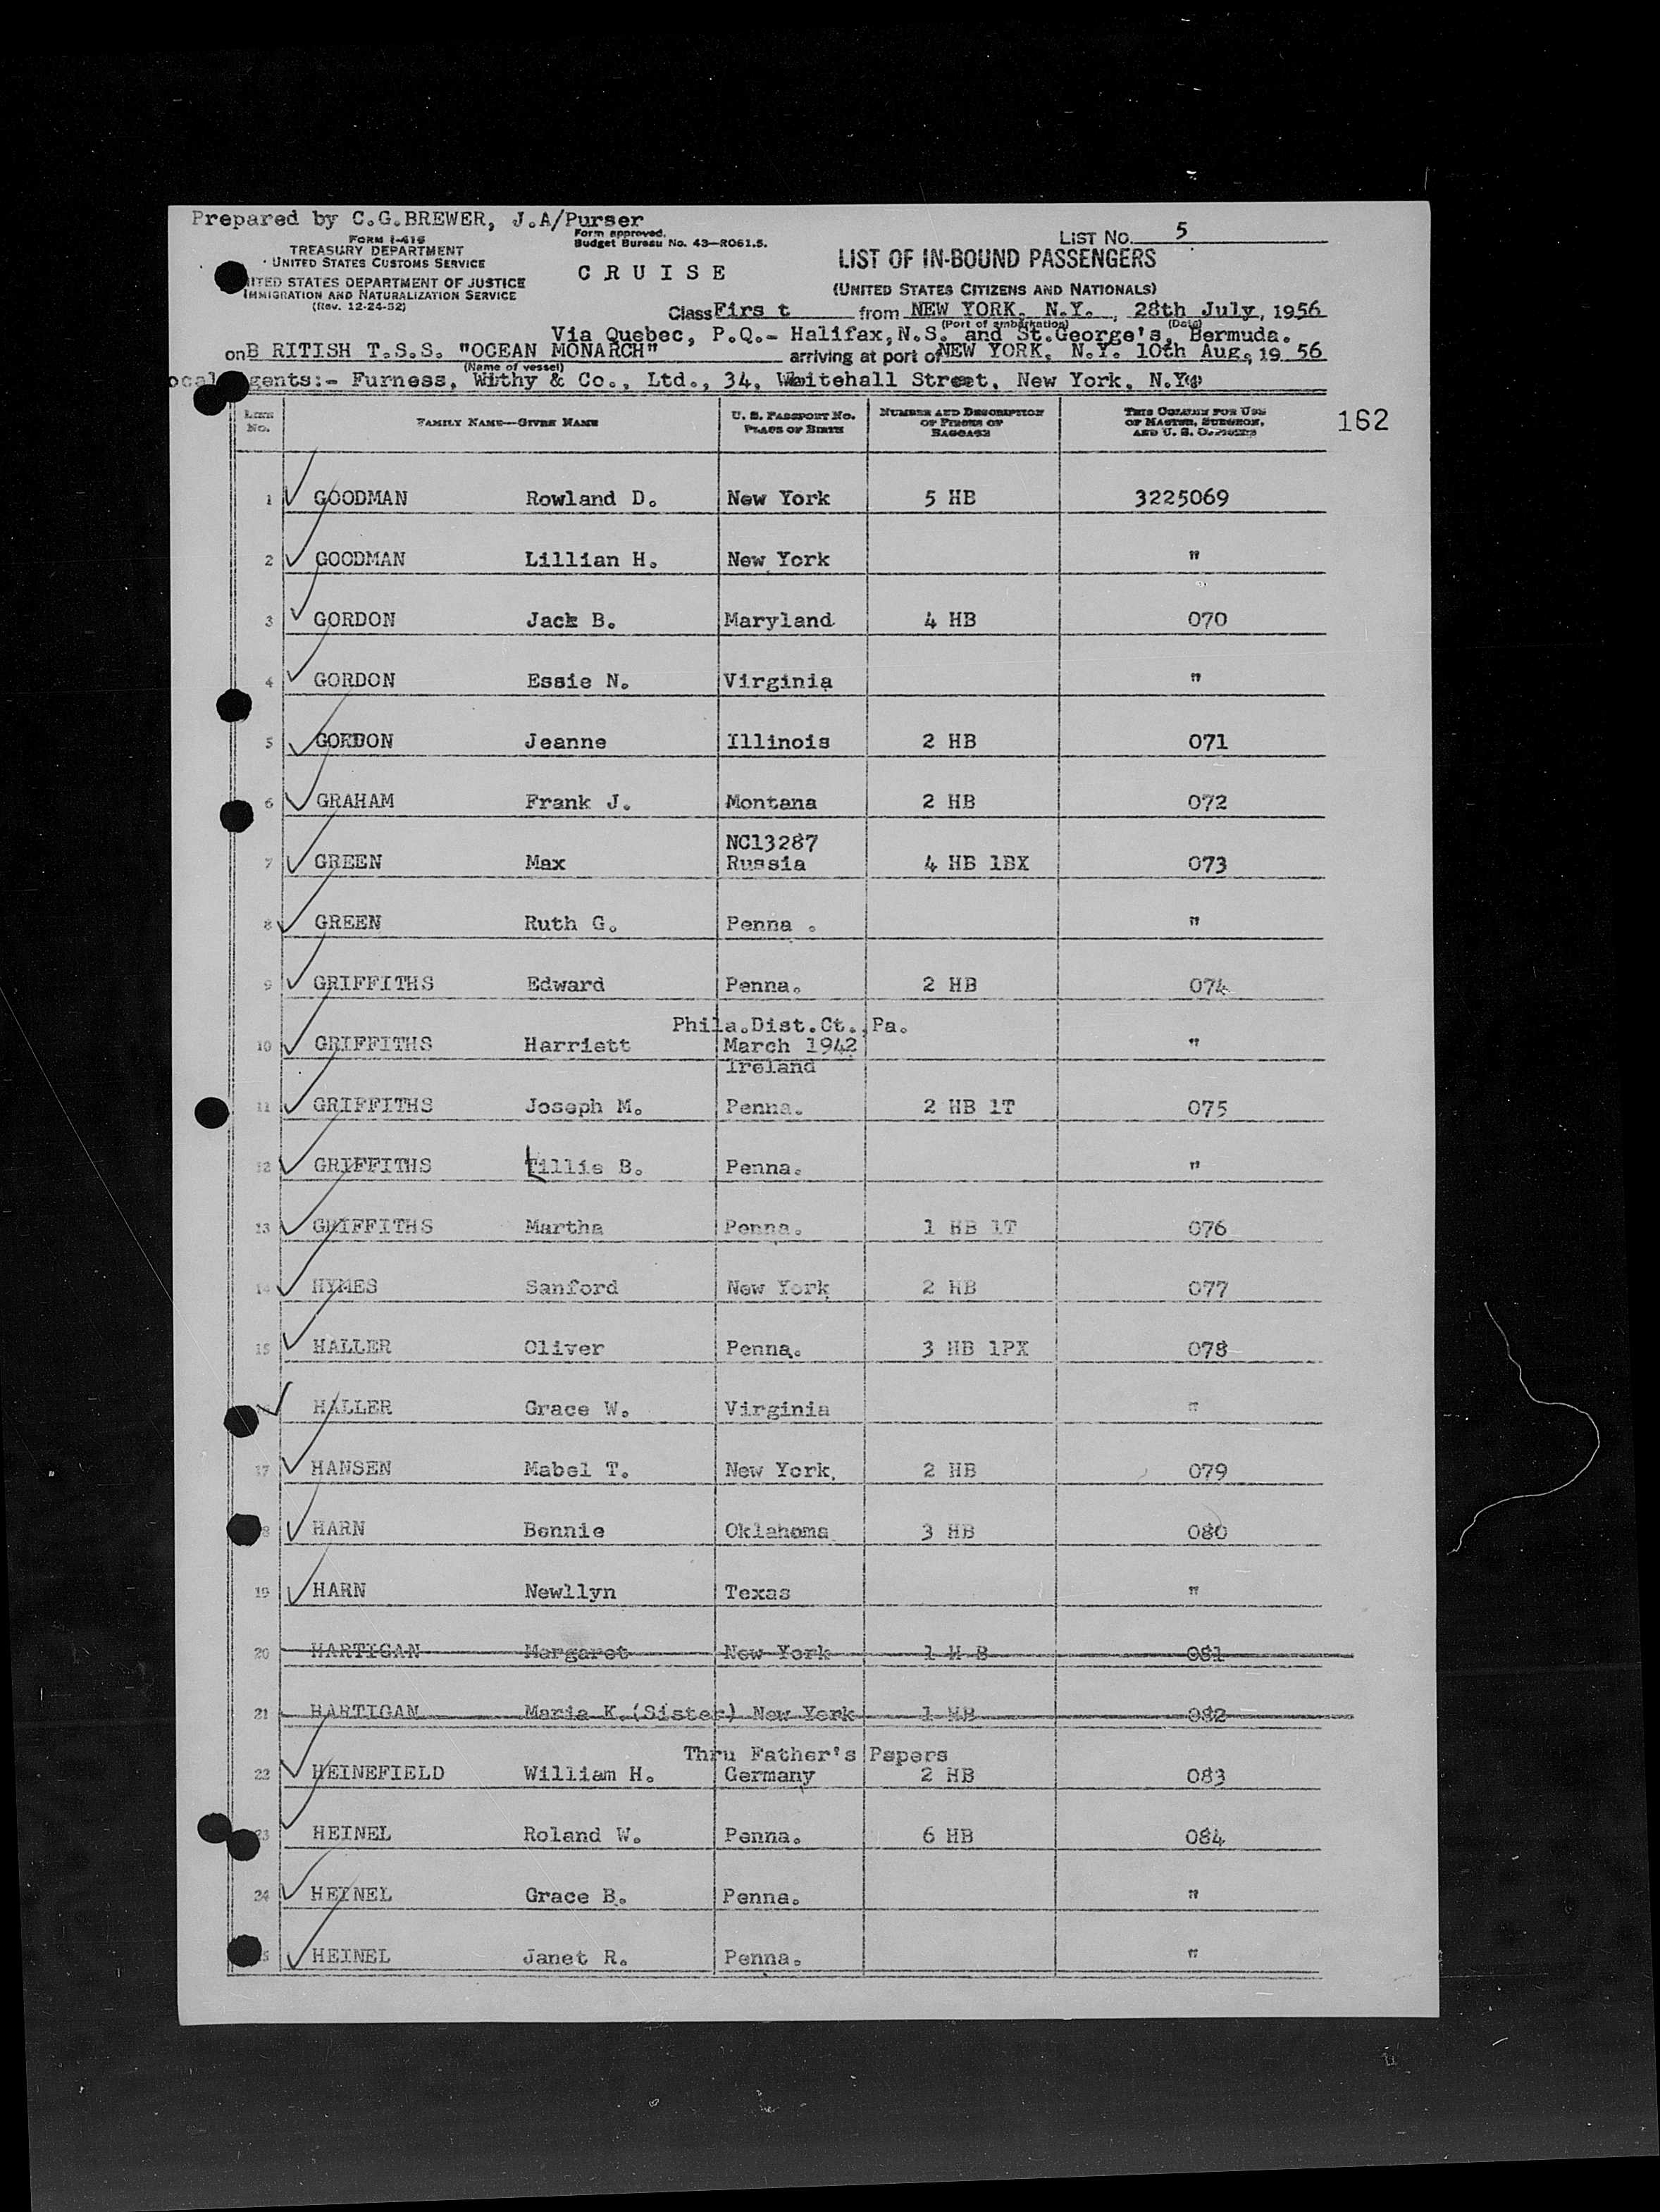 Prepared by C.G.BREWER, J.A/Purser
FORM I-416
TREASURY DEPARTMENT
UNITED STATES CUSTOMS SERVICE
ITED STATES DEPARTMENT OF JUSTICE
IMMIGRATION AND NATURALIZATION SERVICE
(Rev. 12-24-52)
Form approved.
Budget Bureau No. 43—R061.5.
C R U I S E
LIST No. 5
LIST OF IN-BOUND PASSENGERS
(UNITED STATES CITIZENS AND NATIONALS)
Class Firs t from NEW YORK, N.Y. , 28th July, 1956
(Port of embarkation) (Date)
Via Quebec, P.Q.- Halifax,N.S. and St.George's, Bermuda.
on B RITISH T.S.S. "OCEAN MONARCH" arriving at port of NEW YORK, N.Y. 10th Aug, 19 56
(Name of vessel)
ocal gents:- Furness, Withy & Co., Ltd., 34, Whitehall Street, New York, N.Y.
LINE No. FAMILY NAME—GIVEN NAME U. S. PASSPORT NO. PLACE OF BIRTH NUMBER AND DESCRIPTION OF PIECES OF BAGGAGE THIS COLUMN FOR USE OF MASTER, SURGEON, AND U. S. OFFICERS
162
1 GOODMAN Rowland D. New York 5 HB 3225069
2 GOODMAN Lillian H. New York "
3 GORDON Jack B. Maryland 4 HB 070
4 GORDON Essie N. Virginia "
5 GORDON Jeanne Illinois 2 HB 071
6 GRAHAM Frank J. Montana 2 HB 072
NC13287
7 GREEN Max Russia 4 HB 1BX 073
8 GREEN Ruth G. Penna . "
9 GRIFFITHS Edward Penna. 2 HB 074
Phila.Dist.Ct.,Pa.
10 GRIFFITHS Harriett March 1942 "
Ireland
11 GRIFFITHS Joseph M. Penna. 2 HB 1T 075
12 GRIFFITHS Lillie B. Penna. "
13 GRIFFITHS Martha Penna. 1 HB 1T 076
14 HYMES Sanford New York 2 HB 077
15 HALLER Oliver Penna. 3 HB 1PX 078
HALLER Grace W. Virginia "
17 HANSEN Mabel T. New York, 2 HB 079
8 HARN Bennie Oklahoma 3 HB 080
19 HARN Newllyn Texas "
20 HARTIGAN Margaret New York 1 H B 081
21 HARTIGAN Maria K.(Sister) New York 1 HB 082
Thru Father's Papers
22 HEINEFIELD William H. Germany 2 HB 083
23 HEINEL Roland W. Penna. 6 HB 084
24 HEINEL Grace B. Penna. "
5 HEINEL Janet R. Penna. "